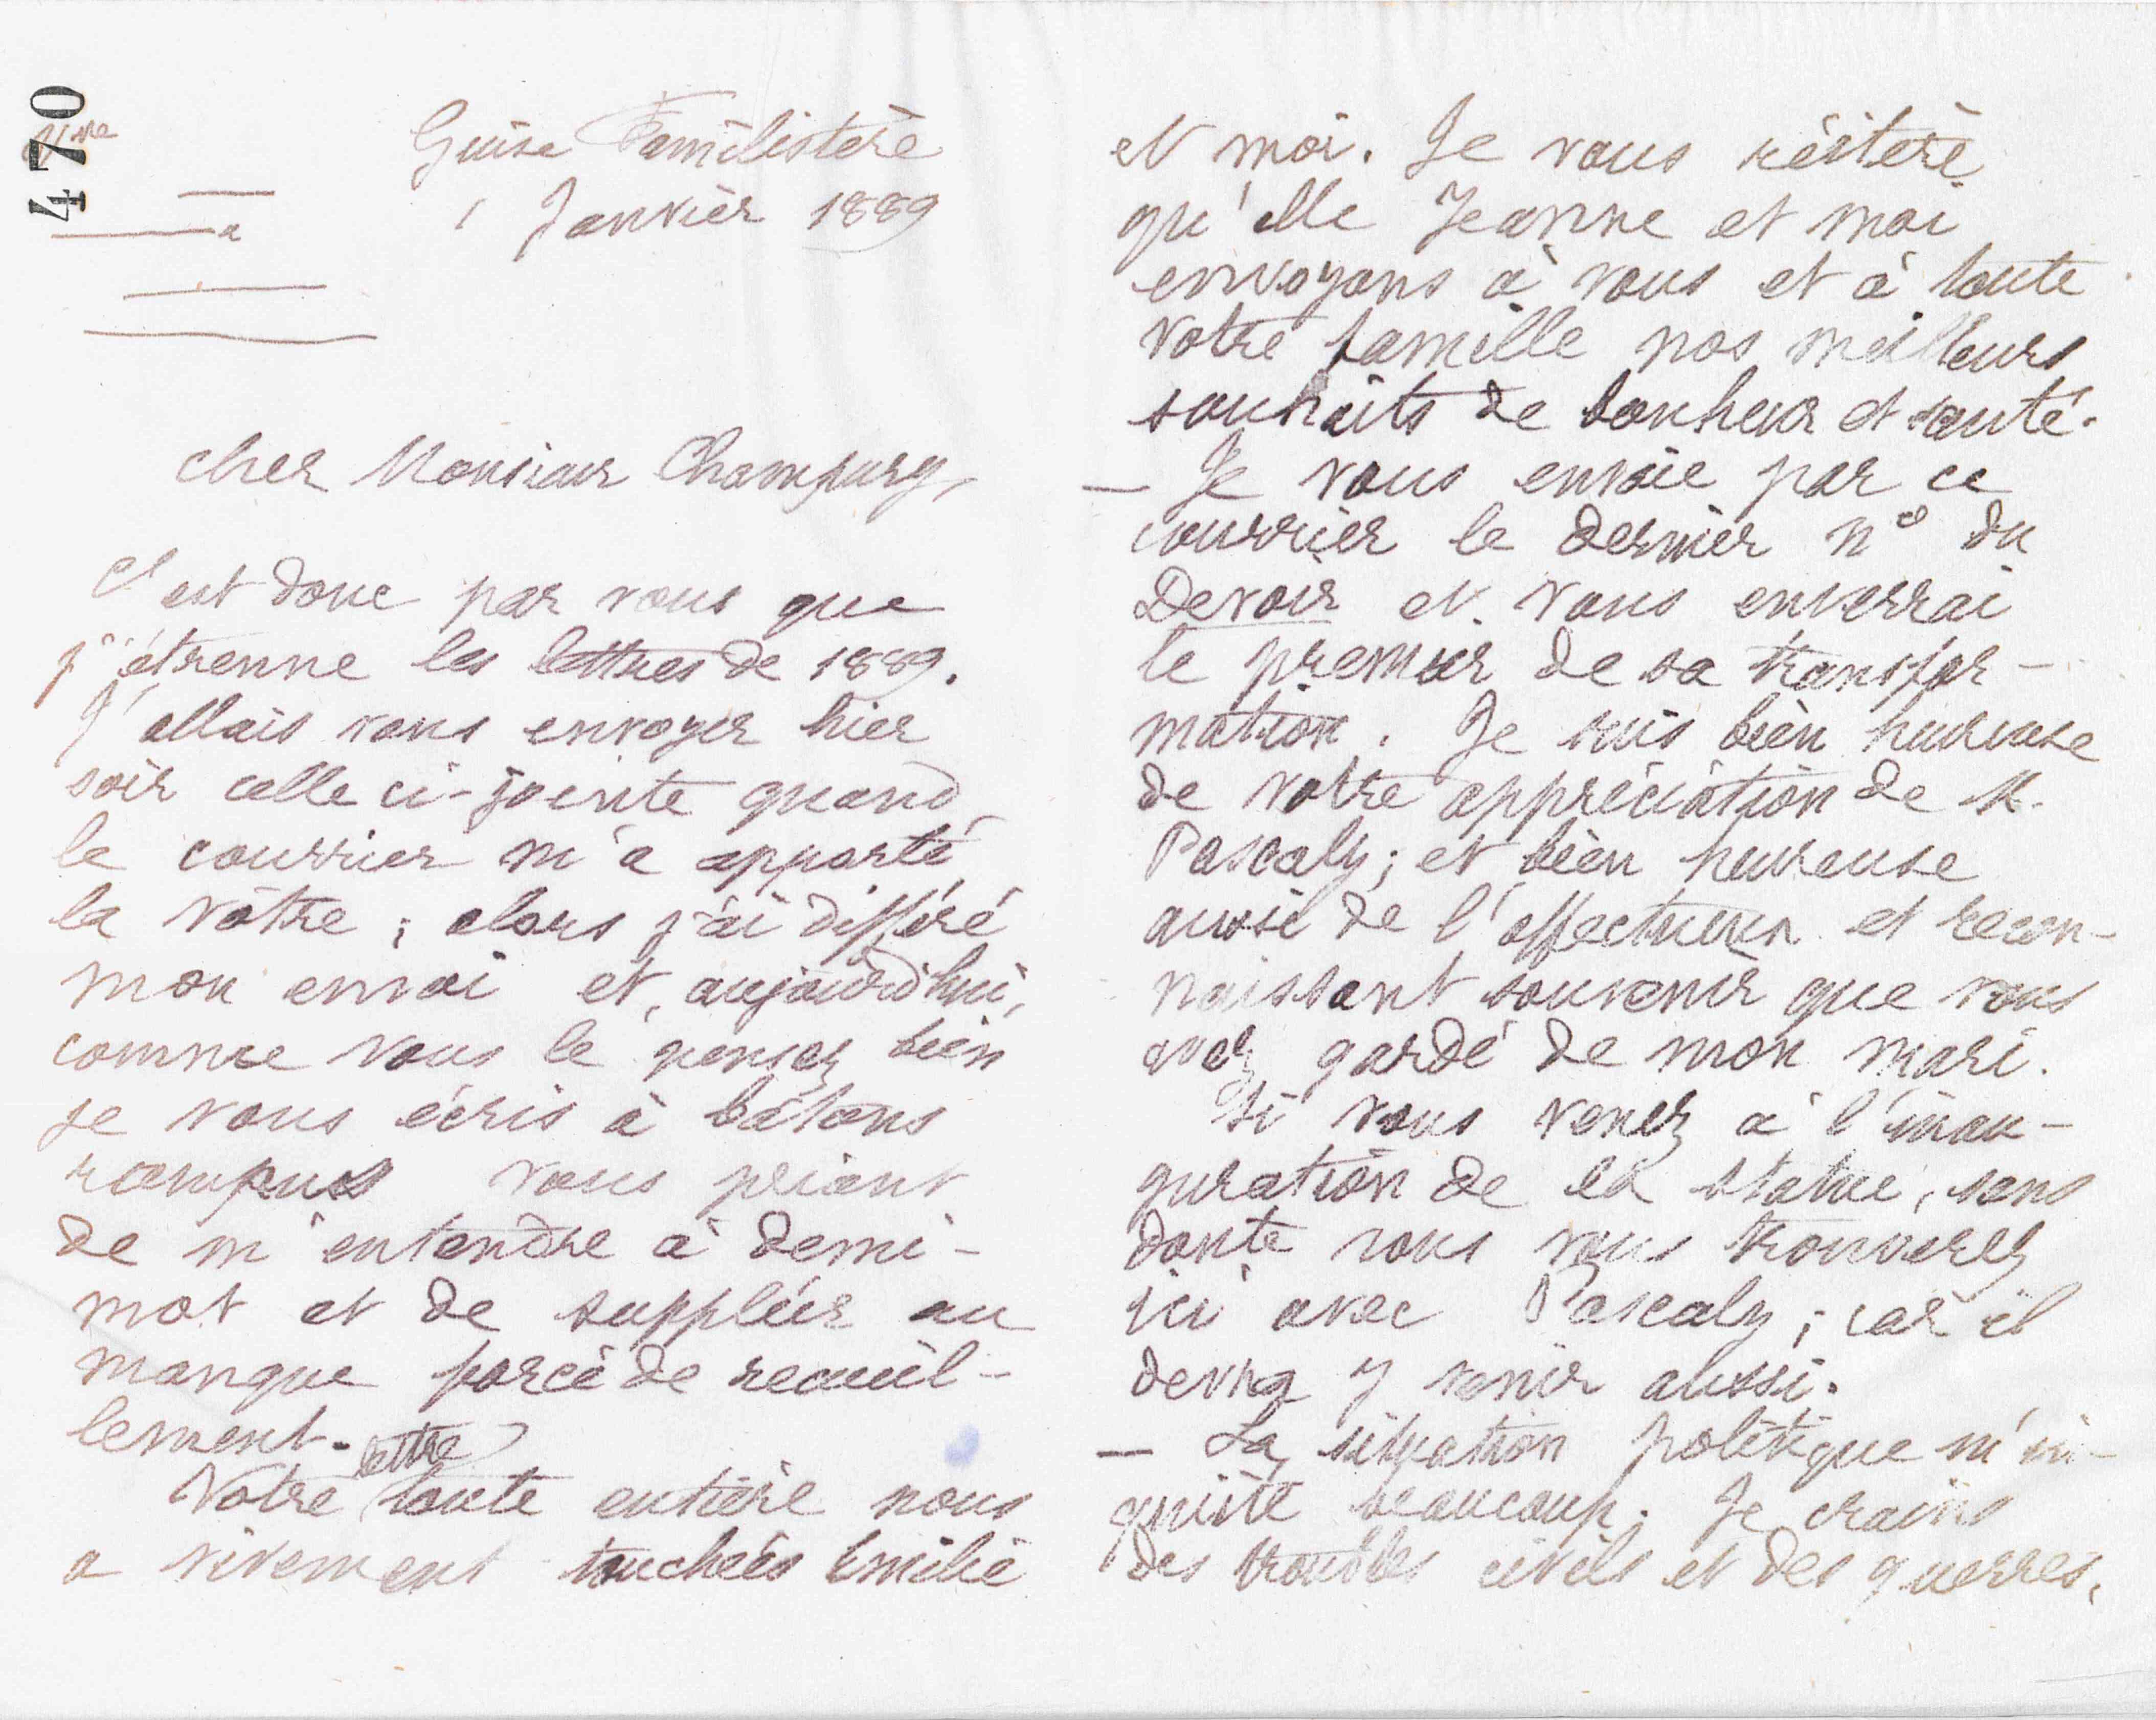 470
Guise Familistère
1 Janvier 1889
a
cher Monsieur Champury,
C'est donc par vous que
j'étrenne les lettres de 1889.
J'allais vous envoyer hier
soir celle ci-jointe quand
le courrier m'a apporté
la vôtre ; alors j'ai différé
mon envoi et, aujourd'hui,
comme vous le pensez bien
je vous écris à bâtons
rompus vous priant
de m'entendre à demi-
mot et de suppléer au
manque forcé de recueil-
lement.
Votre lettre toute entière nous
a vivement touchées Emilie
et moi. Je vous réitère
qu'elle Jeanne et moi
envoyons à vous et à toute
votre famille nos meilleurs
souhaits de bonheur et santé.
— Je vous envoie par ce
courrier le dernier n° du
Devoir et vous enverrai
le premier de sa transfor-
mation. Je suis bien heureuse
de votre appréciation de M.
Pascaly ; et bien heureuse
aussi de l'affectueux et recon-
naissant souvenir que vous
avez gardé de mon mari.
Si vous venez à l'inau-
guration de la statue, sans
doute vous vous trouverez
ici avec Pascaly ; car il
devra y venir aussi.
— La situation politique m'in-
quiète beaucoup. Je crains
des troubles civils et des guerres.